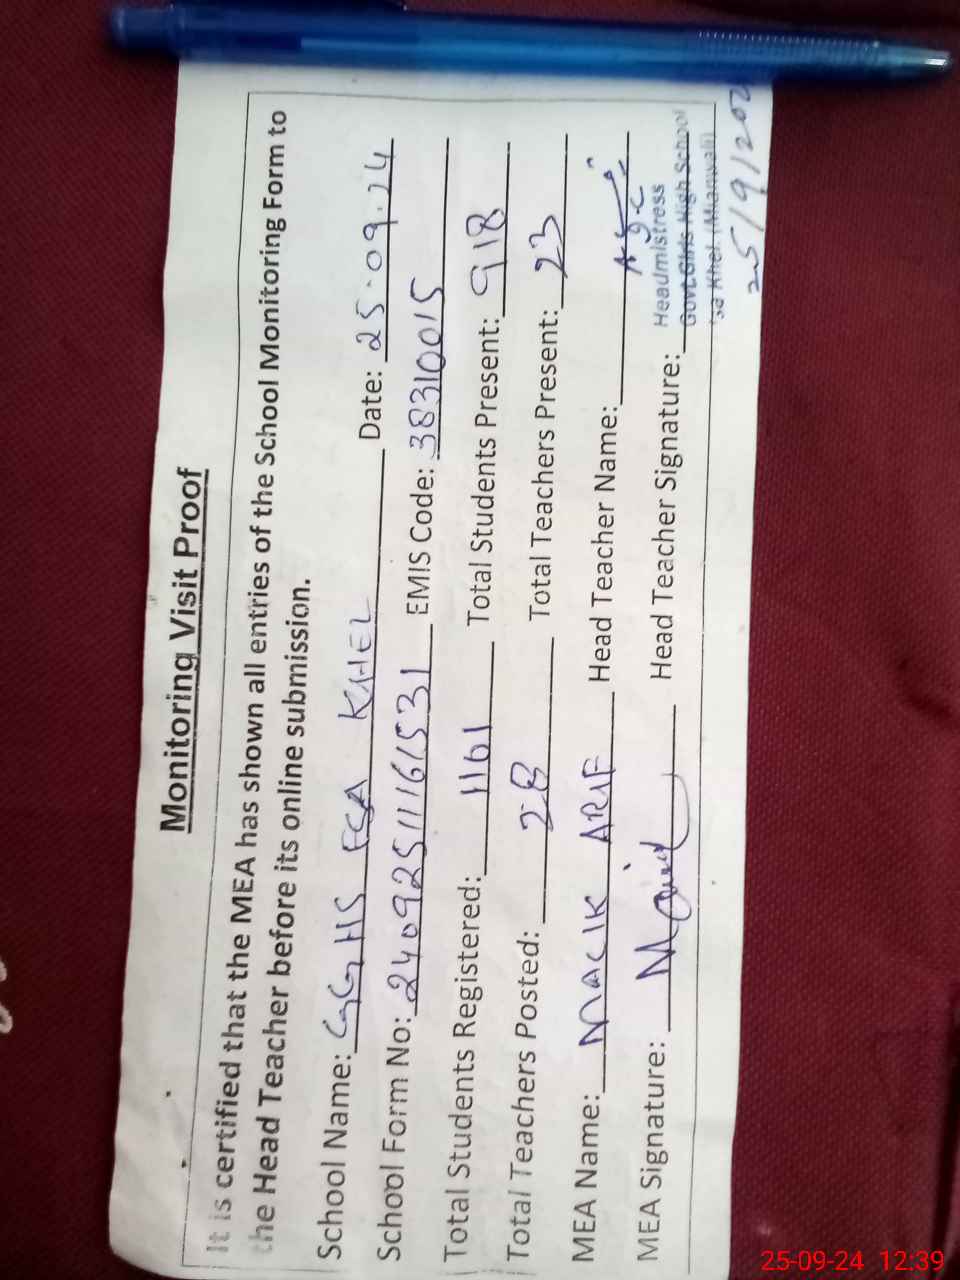 Monitoring Visit Proof
It is certified that the MEA has shown all entries of the School Monitoring Form to
the Head Teacher before its online submission.
School Name: GGHS ESA KHEL Date: 25.09.24
School Form No: 24092511161531 EMIS Code: 38310015
Total Students Registered: 1161 Total Students Present: 918
Total Teachers Posted: 28 Total Teachers Present: 23
MEA Name: MALIK ARIF Head Teacher Name:
MEA Signature: Head Teacher Signature:
Headmistress
Govt.Girls High School
Khel (Mianwali)
25/9/202
25-09-24 12:39